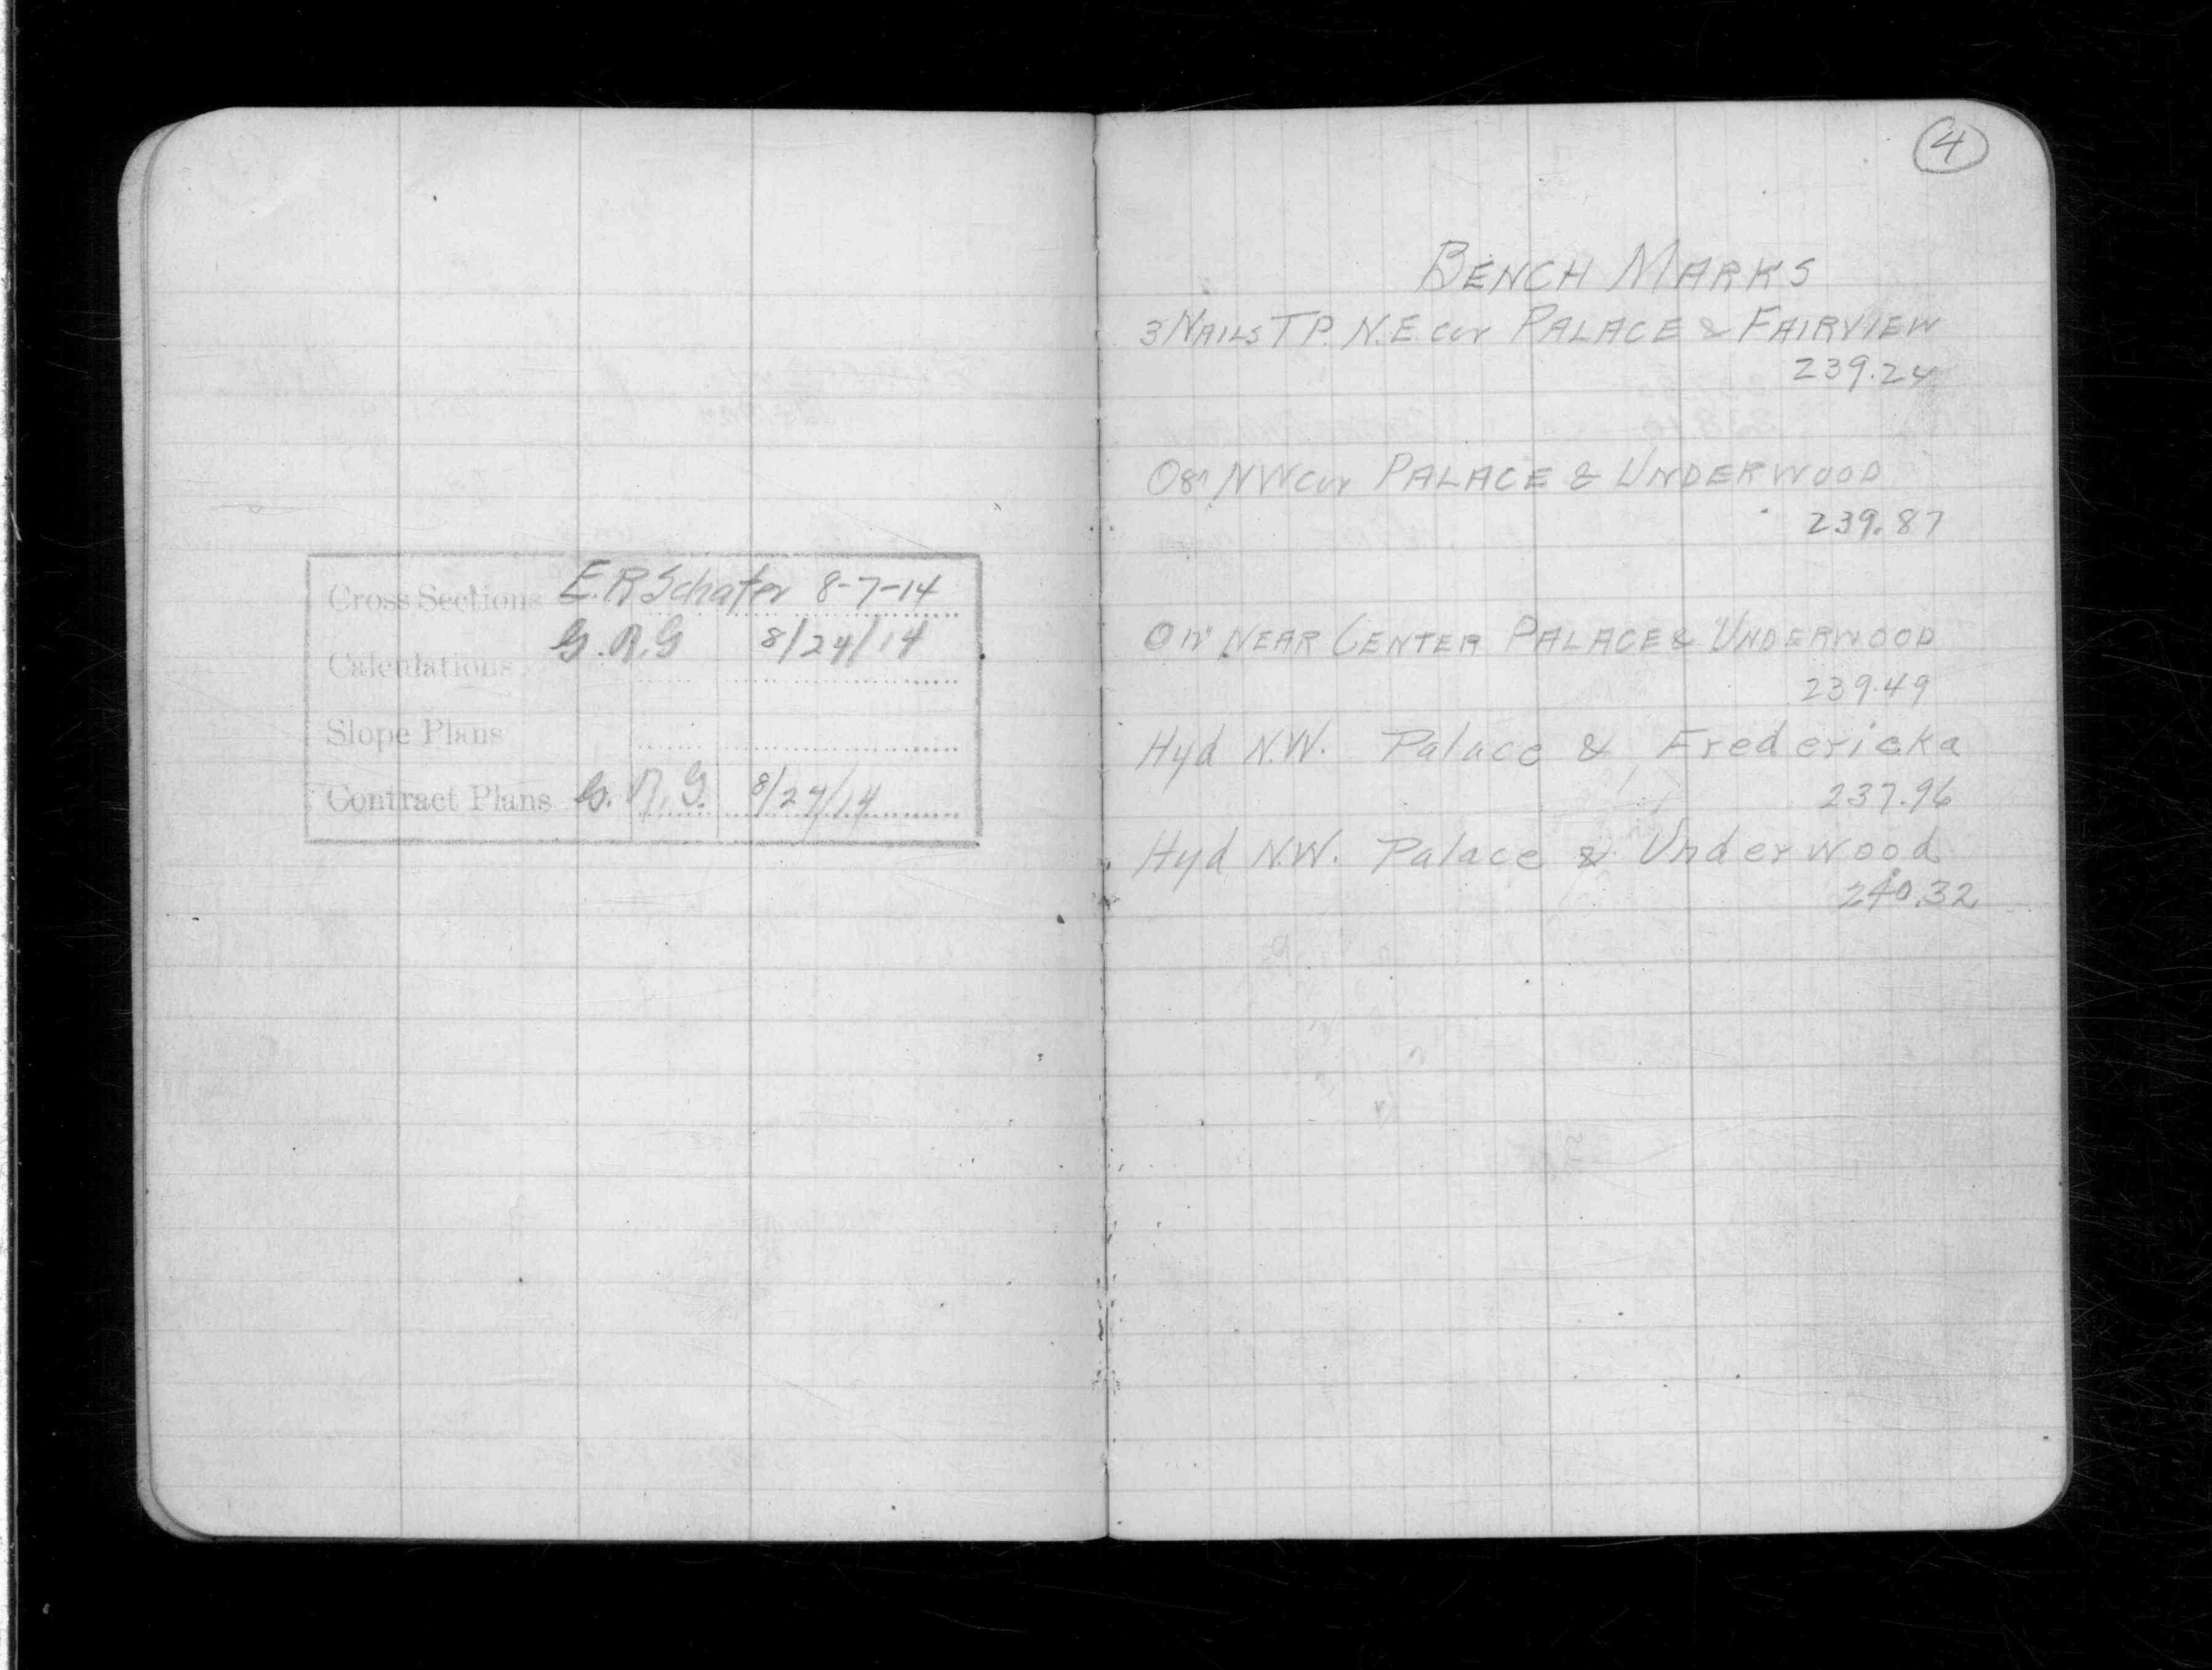 Cross Sections E.R Schafer 8-7-14
Calculations G.N.G 8/24/14
Slope Plans
Contract Plans G.N.G. 8/24/14
4
BENCH MARKS
3 NAILS T P. N.E. cor PALACE & FAIRVIEW
239.24
NW cor PALACE & UNDERWOOD
239.87
NEAR CENTER PALACE & UNDERWOOD
239.49
Hyd N.W. Palace & Fredericka
237.96
Hyd N.W. Palace & Underwood
240.32